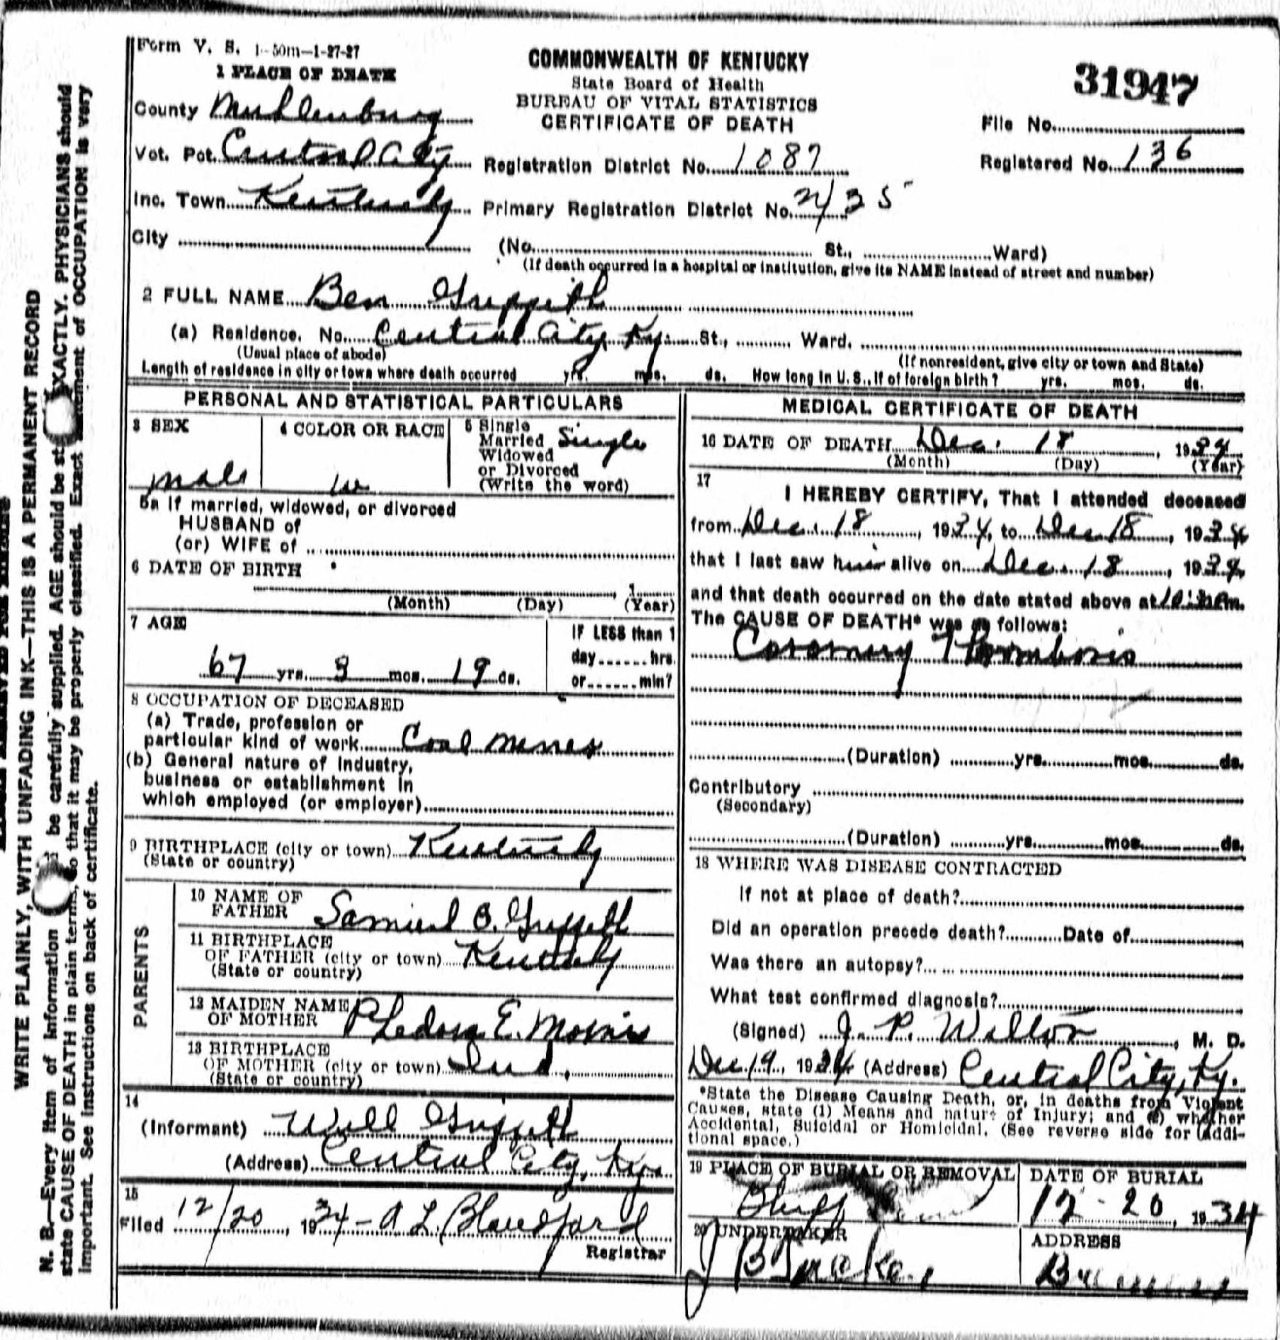 Form V. S. 1-50m-1-27-27
1 PLACE OF DEATH
COMMONWEALTH OF KENTUCKY
State Board of Health
BUREAU OF VITAL STATISTICS
CERTIFICATE OF DEATH
31947
County Muhlenburg
File No.
Vot. Pct. Central City Registration District No. 1087 Registered No. 136
Inc. Town Kentucky Primary Registration District No. 2435
City (No. St., Ward)
(If death occurred in a hospital or institution, give its NAME instead of street and number)
2 FULL NAME Ben Griffith
(a) Residence. No. Central City Ky. St., Ward.
(Usual place of abode) (If nonresident, give city or town and State)
Length of residence in city or town where death occurred yrs. mos. ds. How long in U. S., if of foreign birth? yrs. mos. ds.
PERSONAL AND STATISTICAL PARTICULARS
3 SEX
male
4 COLOR OR RACE
w
5 Single
Married
Widowed
or Divorced
(Write the word)
Single
5a If married, widowed, or divorced
HUSBAND of
(or) WIFE of
6 DATE OF BIRTH
1
(Month) (Day) (Year)
7 AGE
67 yrs. 3 mos. 19 ds.
IF LESS than 1
day hrs.
or min?
8 OCCUPATION OF DECEASED
(a) Trade, profession or
particular kind of work Coal miner
(b) General nature of industry,
business or establishment in
which employed (or employer)
9 BIRTHPLACE (city or town) Kentucky
(State or country)
PARENTS
10 NAME OF
FATHER Samuel B. Griffith
11 BIRTHPLACE
OF FATHER (city or town) Kentucky
(State or country)
12 MAIDEN NAME
OF MOTHER Phedora E. Morris
13 BIRTHPLACE
OF MOTHER (city or town) Ind.
(State or country)
14
(Informant) Will Griffith
(Address) Central City, Ky.
15
Filed 12/20, 1934 - A L. Blandford
Registrar
MEDICAL CERTIFICATE OF DEATH
16 DATE OF DEATH Dec. 18, 1934
(Month) (Day) (Year)
17
I HEREBY CERTIFY, That I attended deceased
from Dec. 18, 1934, to Dec 18, 1934
that I last saw him alive on Dec. 18, 1934,
and that death occurred on the date stated above at
The CAUSE OF DEATH* was as follows:
Coronary Thrombosis
(Duration) yrs. mos. ds.
Contributory
(Secondary)
(Duration) yrs. mos. ds.
18 WHERE WAS DISEASE CONTRACTED
If not at place of death?
Did an operation precede death? Date of
Was there an autopsy?
What test confirmed diagnosis?
(Signed) J. P. Walton, M. D.
Dec. 19, 1934 (Address) Central City, Ky.
*State the Disease Causing Death, or, in deaths from Violent
Causes, state (1) Means and nature of Injury; and (2) whether
Accidental, Suicidal or Homicidal. (See reverse side for addi-
tional space.)
19 PLACE OF BURIAL OR REMOVAL
DATE OF BURIAL
12-20, 1934
20 UNDERTAKER
J B Tucker
ADDRESS
WRITE PLAINLY, WITH UNFADING INK—THIS IS A PERMANENT RECORD
N. B.—Every item of information be carefully supplied. AGE should be EXACTLY. PHYSICIANS should
state CAUSE OF DEATH in plain terms, so that it may be properly classified. Exact statement of OCCUPATION is very
important. See instructions on back of certificate.